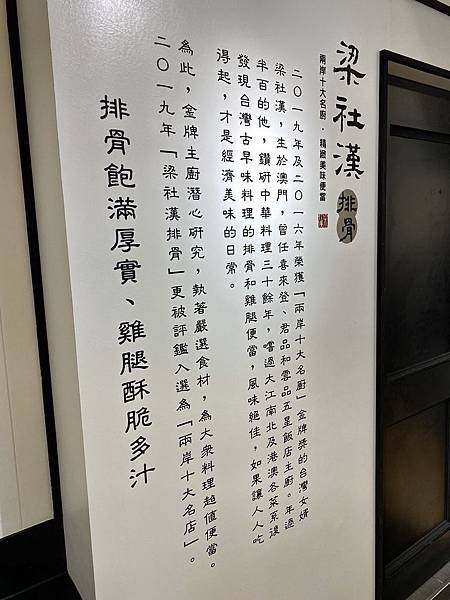 梁社漢排骨
兩岸十大名廚・精緻美味便當
二〇一九年及二〇一六年榮獲「兩岸十大名廚」金牌獎的台灣女婿
梁社漢，生於澳門，曾任喜來登、君品和雲品五星飯店主廚。年過
半百的他，鑽研中華料理三十餘年，嚐過大江南北及港澳各菜系後
發現台灣古早味料理的排骨和雞腿便當，風味絕佳，如果讓人人吃
得起，才是經濟美味的日常。
為此，金牌主廚潛心研究，執著嚴選食材，為大眾料理超值便當。
二〇一九年「梁社漢排骨」更被評鑑入選為「兩岸十大名店」。
排骨飽滿厚實、雞腿酥脆多汁